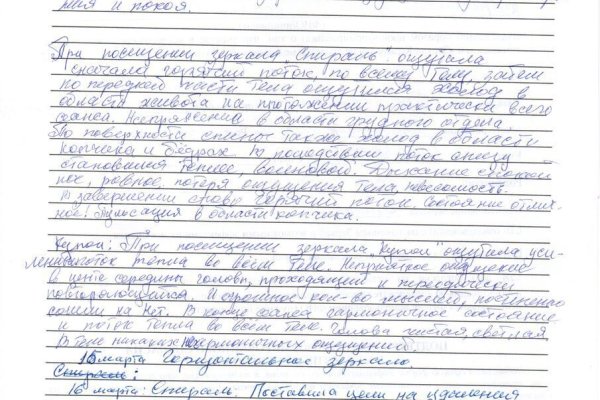 ния и покоя.
При посещении зеркала "Спираль" ощутила
сначала горячий поток, по всему телу, затем
по передней части тела ощущался холод в
области живота на протяжении практически всего
сеанса. Напряжение в области грудного отдела.
По поверхности спины также холод в области
копчика и бедрах. В последствии поток снизу
становился теплее, волновой. Дыхание спокой
ное, ровное, потеря ощущения тела, невесомость.
В завершении снова горячий поток. Состояние отлич-
ное. Пульсация в области копчика.
Купол: При посещении зеркала "Купол" ощутила уси-
ление поток тепла во всём теле. Неприятное ощущение
в центре середины головы, проходящий и периодически
повторяющийся. И огромное кол-во мыслей, постепенно
сошли на нет. В конце сеанса гармоничное состояние
и поток тепла во всём теле. Голова чистая, светлая
В теле никаких негармоничных ощущений.
15 марта Горизонтальное зеркало.
Спираль:
16 марта: Спираль. Поставила цели на удаления